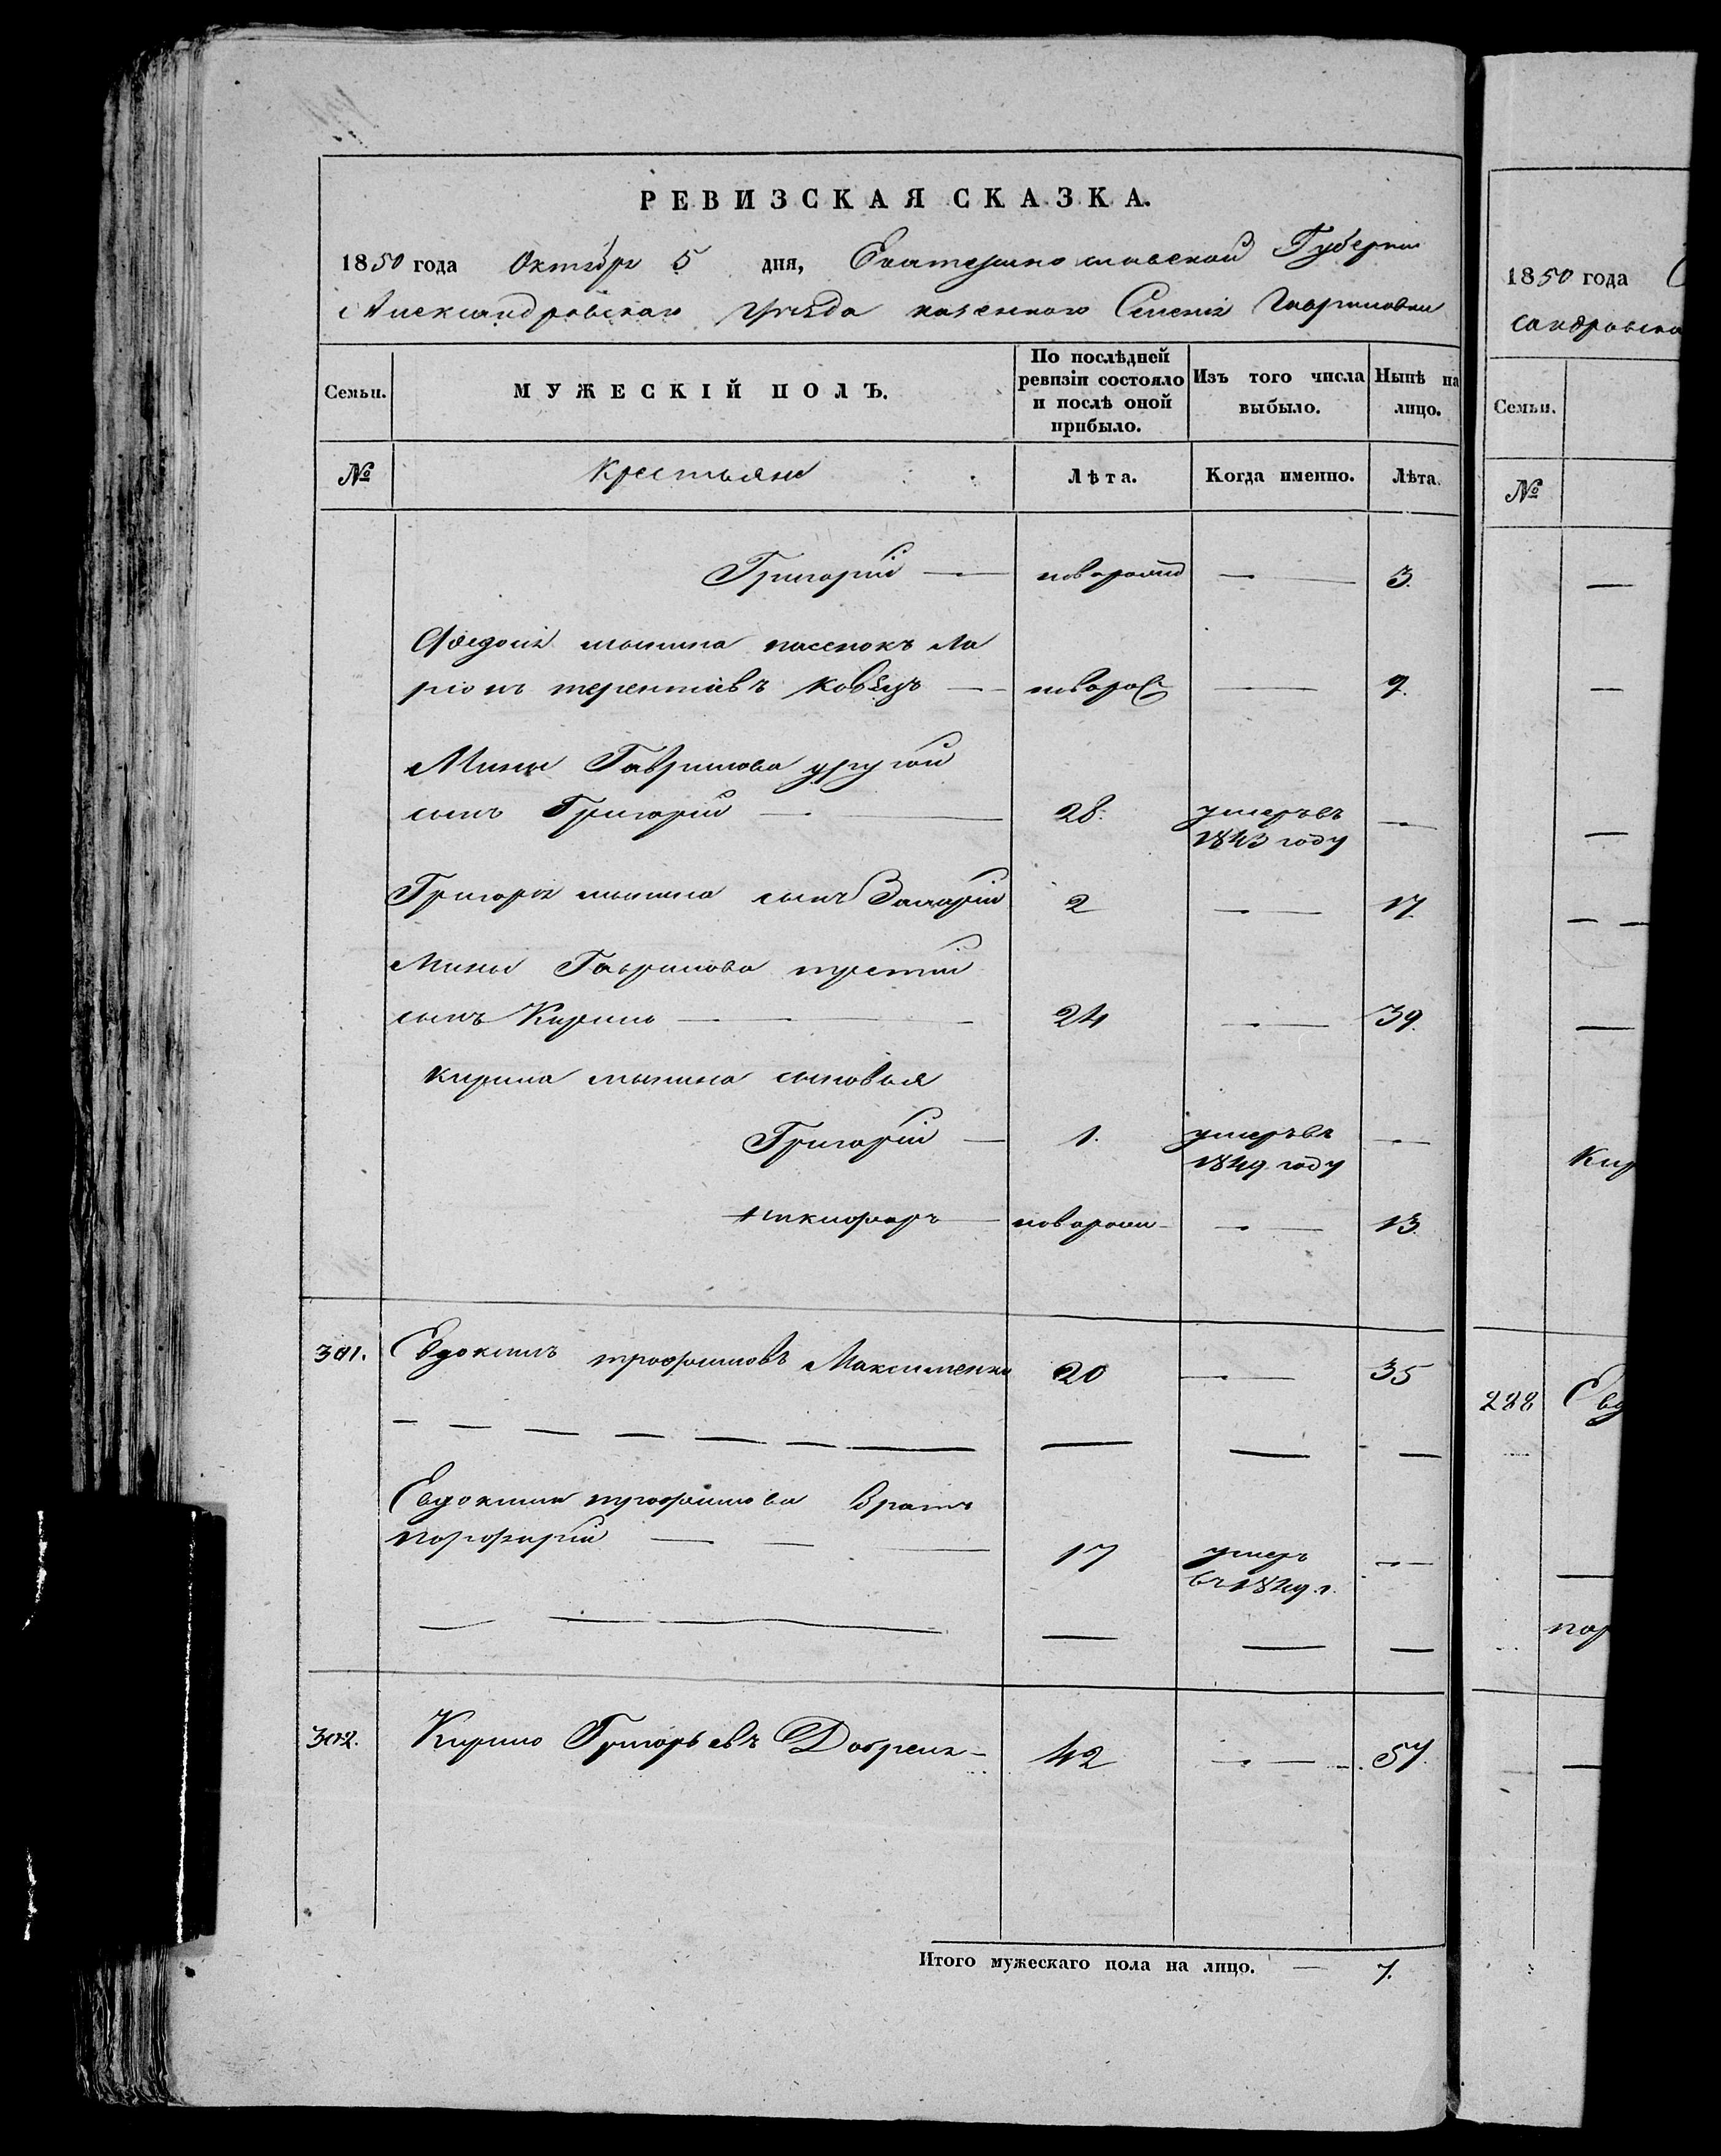 РЕВИЗСКАЯ СКАЗКА.
1850 года Октября 5 дня, Екатеринославской Губерніи
Александровскаго уѣзда казенного Селенія Гавриловки
Семьи. МУЖЕСКІЙ ПОЛЪ. По послѣдней ревизіи состояло и послѣ оной прибыло. Изъ того числа выбыло. Нынѣ на лицо.
№ Крестьяне Лѣта. Когда именно. Лѣта.
Григорій — новорожд — 3.
Федосія минина пасенокъ Ла
ріонъ терентіевъ — новорож — 9.
Мины Гаврилова другой
сынъ Григорій — 28. умеръ въ —
1843 году
Григорія минина сынъ Захарій 2 — 17.
Мины Гаврилова третій
сынъ Кирило — 24 — 39.
Кирила минина сыновья
Григорій — 1. умеръ въ —
1849 году
Никифоръ — новорожд — 13
301. Евдокимъ трофимовъ Максименко 20 — 35
Евдокима трофимова братъ
порфирій — 17 умеръ —
въ 1849 г.
302. Кирило Григорьевъ 42 — 57.
Итого мужескаго пола на лицо. — 7.
1850 года
сандровска
Семьи.
№
Кир
288 Евд
пор